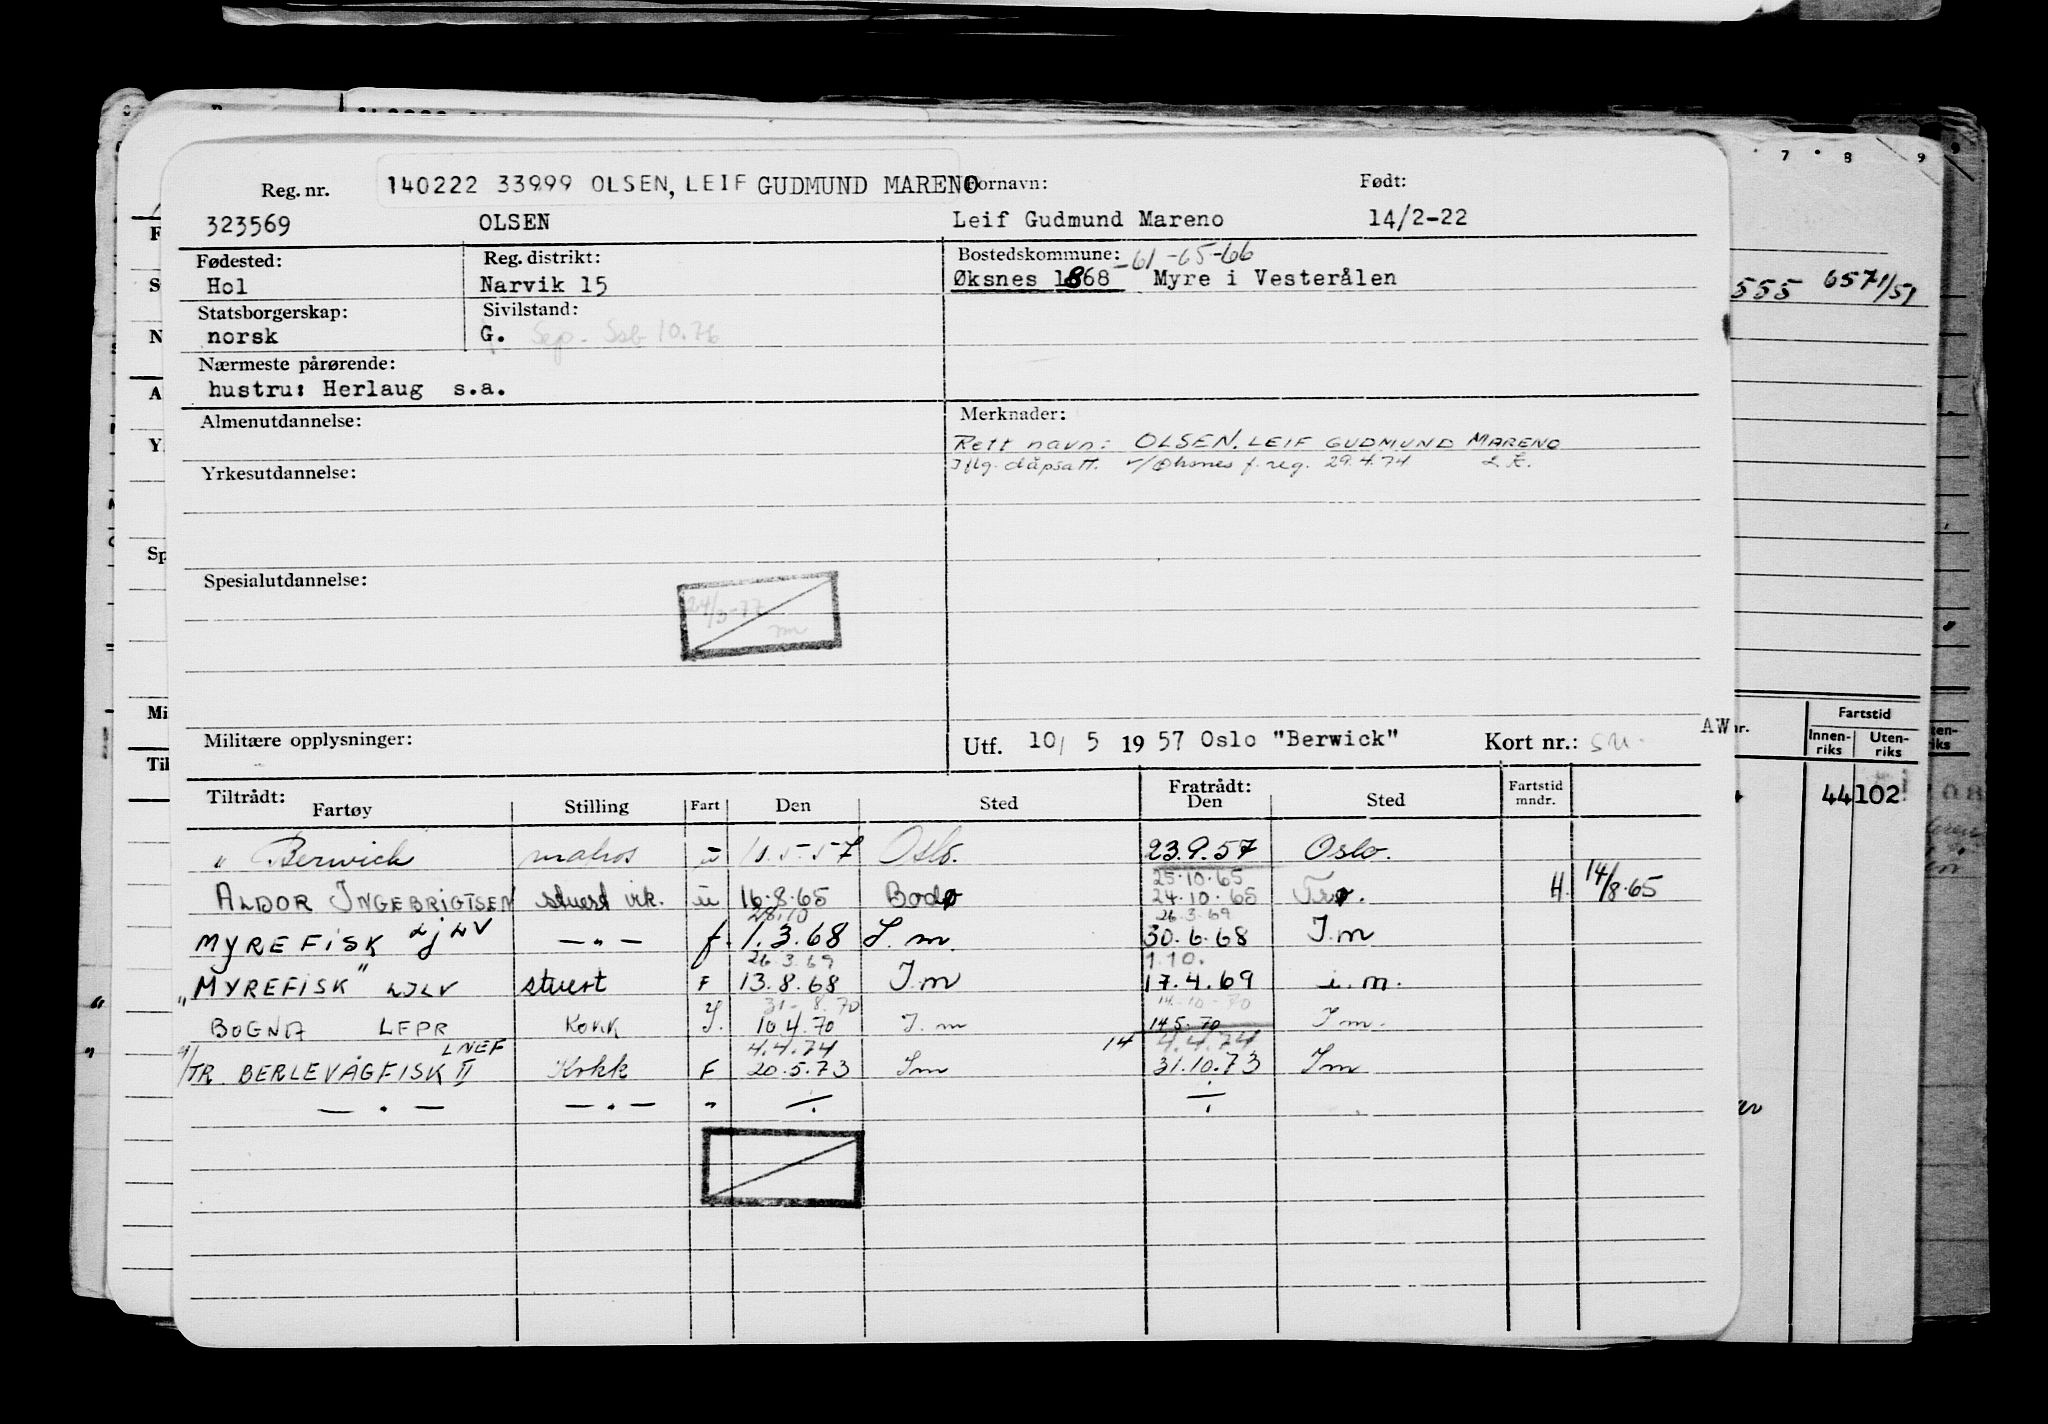 Reg. nr. 140222 33999 OLSEN, LEIF GUDMUND MARENO Fornavn: Født:
323569 OLSEN Leif Gudmund Mareno 14/2-22
Fødested: Reg. distrikt: Bostedskommune: -61-65-66
Hol Narvik 15 Øksnes 1868 Myre i Vesterålen
Statsborgerskap: Sivilstand:
norsk G. Sep. 10.76
Nærmeste pårørende:
hustru: Herlaug s.a.
Almenutdannelse: Merknader:
Rett navn: OLSEN, LEIF GUDMUND MARENO
Iflg. dåpsatt. v/Øksnes f. reg. 29.4.74 L.K.
Yrkesutdannelse:
Spesialutdannelse:
24/3-77
Militære opplysninger: Utf. 10/ 5 1957 Oslo "Berwick" Kort nr.:
Tiltrådt: Fratrådt: Fartstid
Fartøy Stilling Fart Den Sted Den Sted mndr.
" Berwick matros u 5.57 Oslo. 23.9.57 Oslo.
25.10.65
ALDOR INGEBRIGTSEN stuert vik. u 16.8.65 Bodø 24.10.65 H. 14/8.65
28.10 26.3.69
MYREFISK LJLV — " — f. 1.3.68 I.m. 30.6.68 I.m
26.3.69 1.10.
"MYREFISK" LJLV stuert F 13.8.68 I.m 17.4.69 i.m.
31.8.70 14.10.70
BOGNA LFPR Kokk 10.4.70 I.m 14.5.70 I m.
LNEF 4.4.74 14 4.4.74
TR. BERLEVÅGFISK II Kokk F 20.5.73 Im 31.10.73 Im
— " — — " — " ÷ ÷
7 8 9
555 6571/51
AW nr.
Fartstid
Innen-riks Uten-riks
44 102